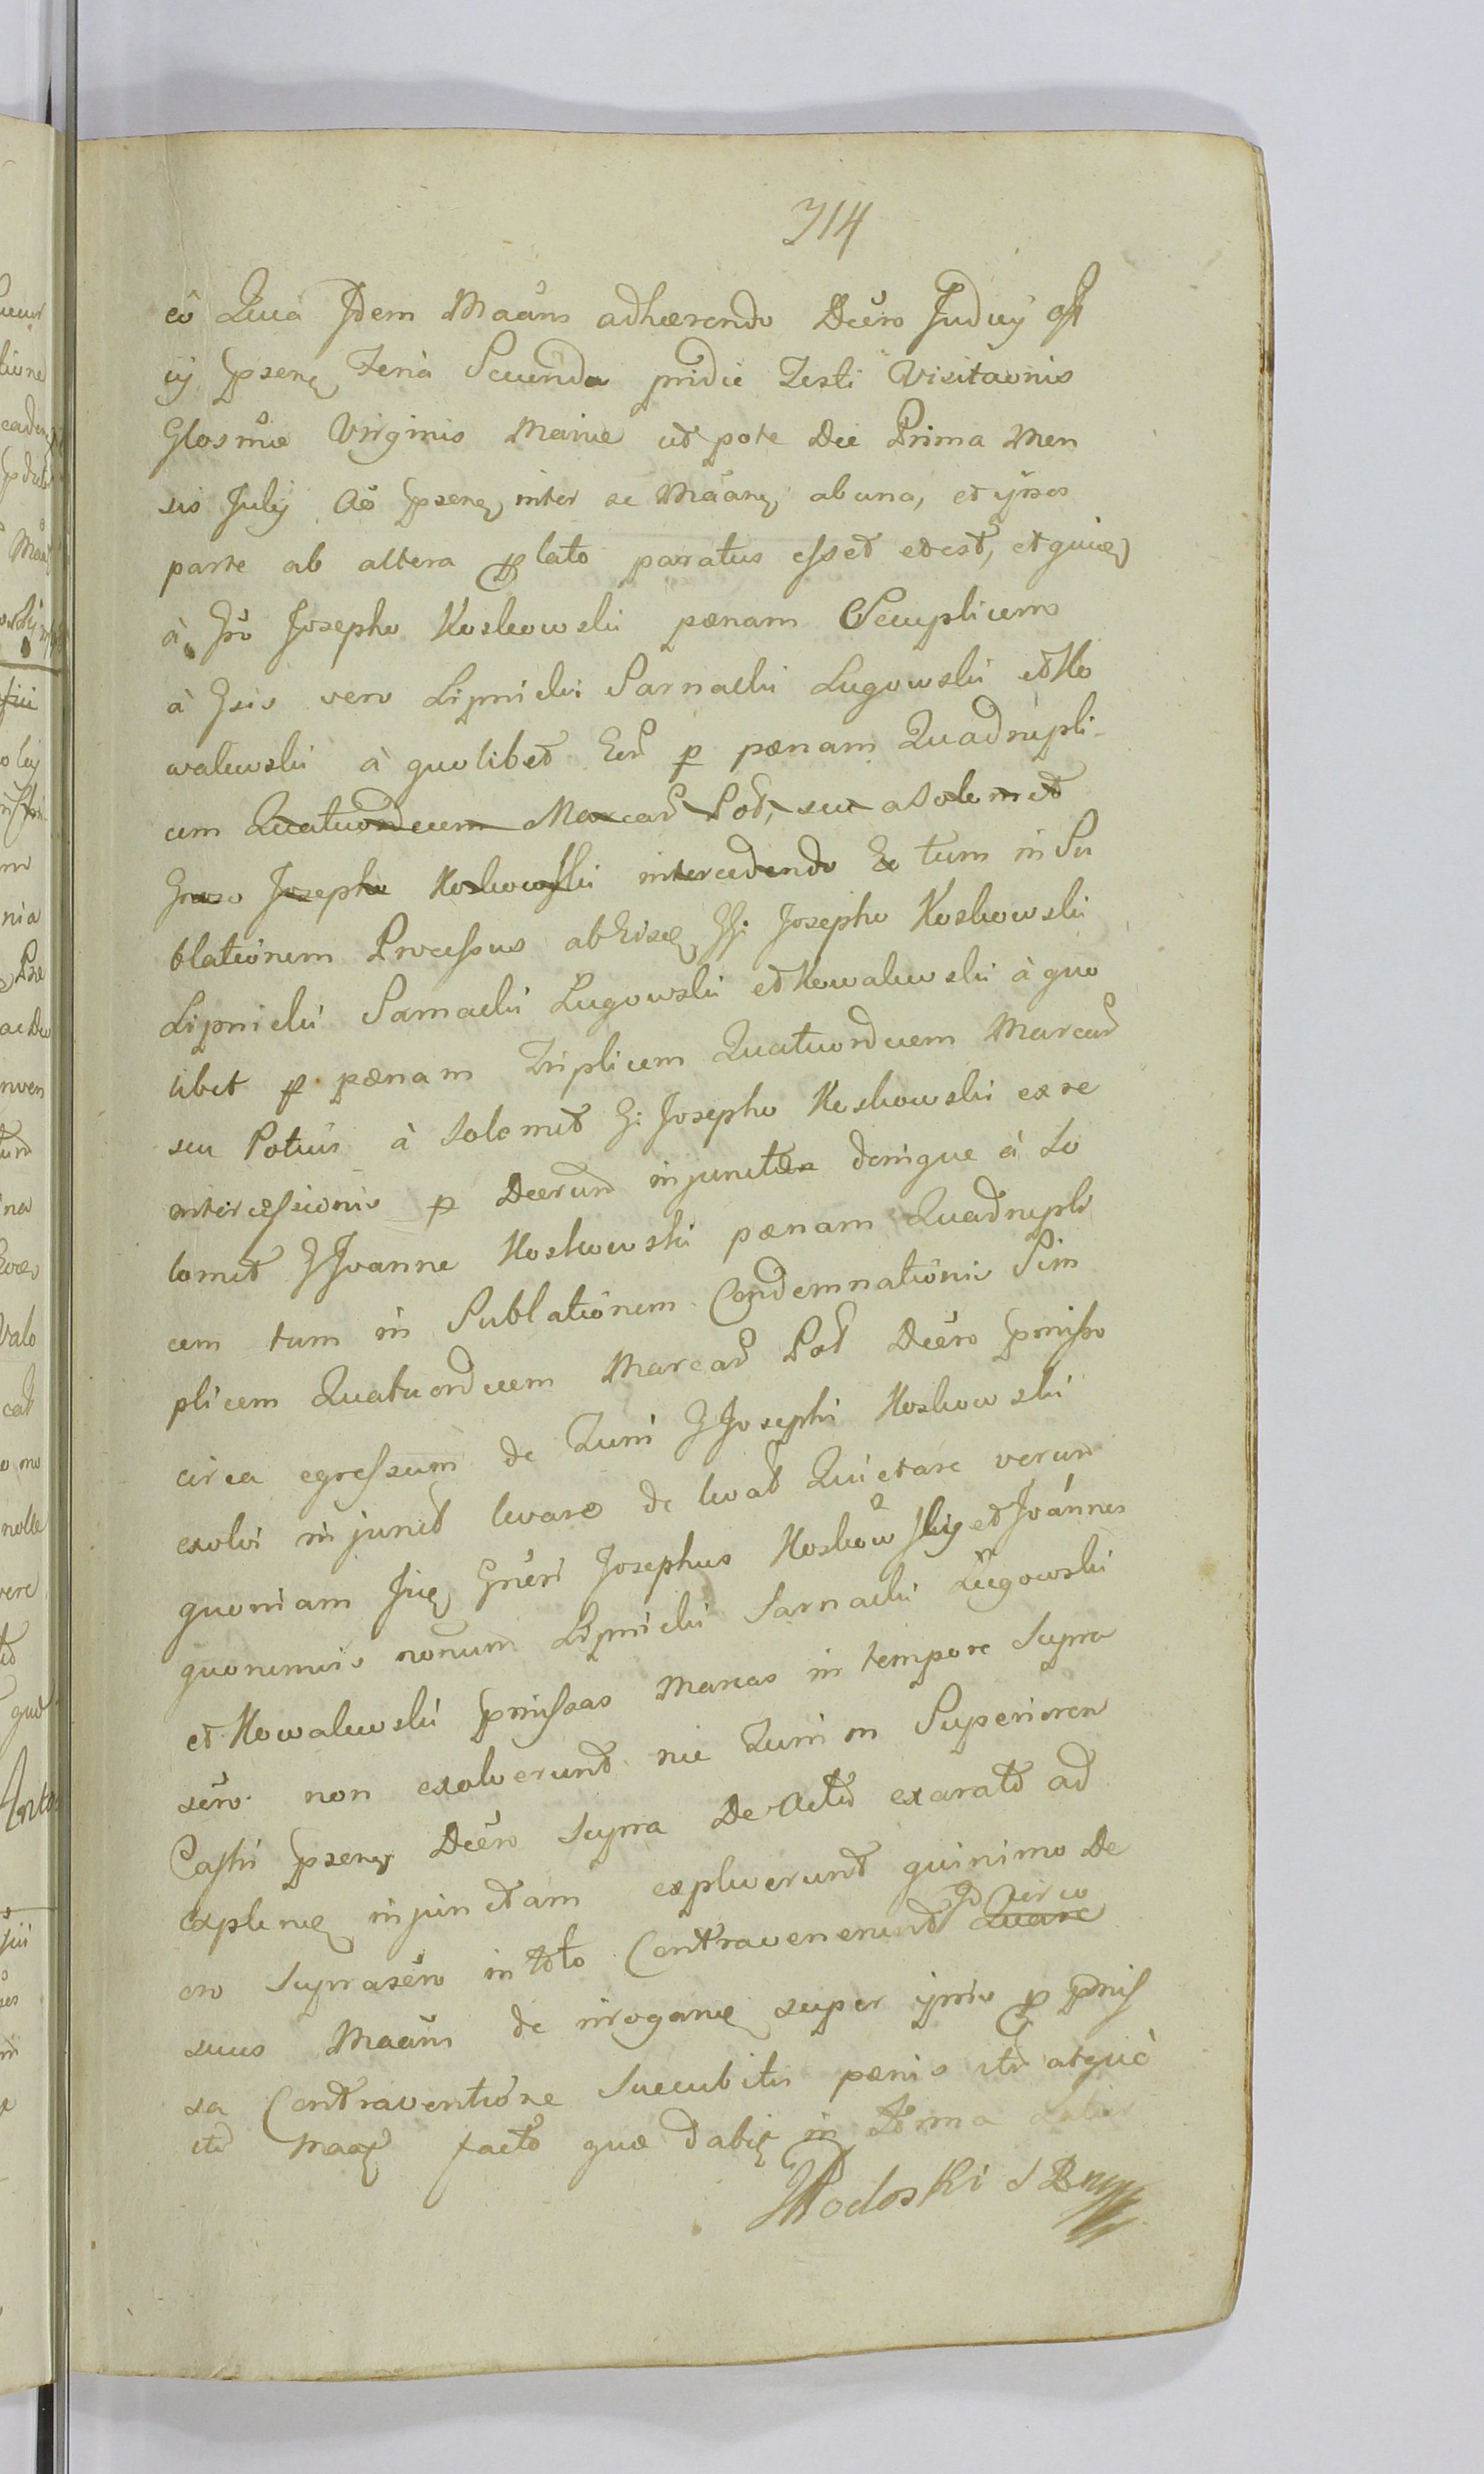 714
eo Qua Idem Maáns adhærendo Decro Judicij offi
cij pseng Feria Secunda pridie Festi Visitaonis
Glosmæ Virginis Mariæ ut pote Die Prima Men
sis Julij Ao pseng inter se Máang ab una, et ipsos
parte ab altera lato paratus esset et est, et quia
à Gso Josepho Koskowski pænam Sexuplicem
à Gsis vero Lipnicki Sarnacki Lugowski et Ko
walewski à quolibet Eor p pænam Quadrupli-
cem Quatuordecem Marcar Pol, seu a Solomet
Groso Josepho Koskowski intercedendo Eo tum in Su
blationem Processus ab Eisd GG: Josepho Koskowski
Lipnicki Sarnacki Lugowski et Kowalewski à quo
libet p pænam Triplicem Quatuordecem Marcar
seu Potius à Solomet G: Josepho Koskowski ex re
intercessionis p Decrum injunctæ denique à So
lomet G Joanne Koskowski pænam Quadrupli
cem tum in Sublationem Condemnationis Sim
plicem Quatuordecem Marcar Pol Decro pmisso
circa egressum de Turri G Josephi Koskowski
exolvi injunct levare de levat Quietare verum
quoniam Gneri Josephus Koskowskij et Joánnes
quonimvis nonum Lipnicki Sarnacki Lugowski
et Kowalewski pmissas Marcas in tempore Supra
scro non exolverunt nec Turrim Superiorem
Castri pseng Decro Supra De Actu exarato ad
explend injunctam expleverunt quinimo De
cro Suprascro in toto Contravenerunt Quare
Id circo
suus Maáns de irogand super ipsis p pmis
sa Contraventione Succubitis pænis ita atque
ita maax facto quæ dabit in Termo Latius
JPodoski SB